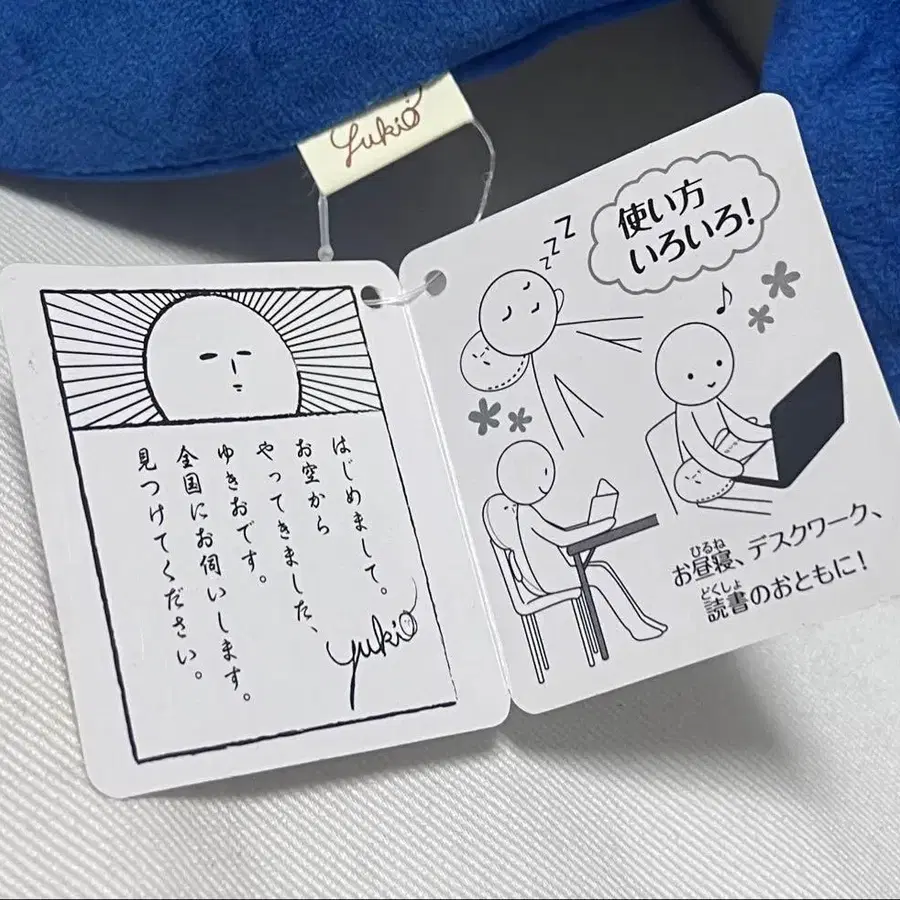 yukio
はじめまして。
お空から
やってきました、
ゆきおです。
全国にお伺いします。
見つけてください。
yukio
zzz
使い方
いろいろ!
お昼寝、デスクワーク、
ひるね
読書のおともに!
どくしょ